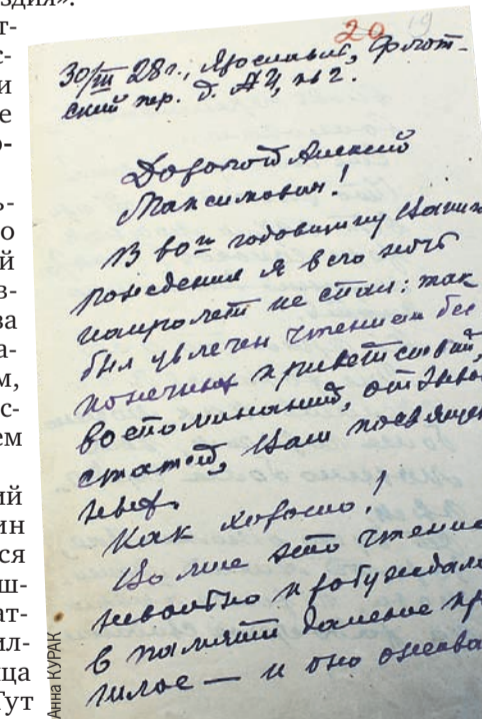 здия".
т-
с-
и
е
о-
ь-
о
й
в-
ва
а-
м,
с-
ем
ий
ин
ся
ш-
ат-
ил-
ца
Тут
20 19
30/III 28 г., Ярославль, Флот-
ский пер. д. № 2.
Дорогой Алексей
Максимович!
В 60ю годовщину Вашего
рождения я всю ночь
напролет не спал: так
был увлечен чтением бес
конечных приветствий,
воспоминаний, отзывов
статей, Вам посвящен
ных.
Как хорошо!
Но мне это чтение
невольно пробуждало
в памяти далекое про
шлое — и оно ожива
Анна КУРАК